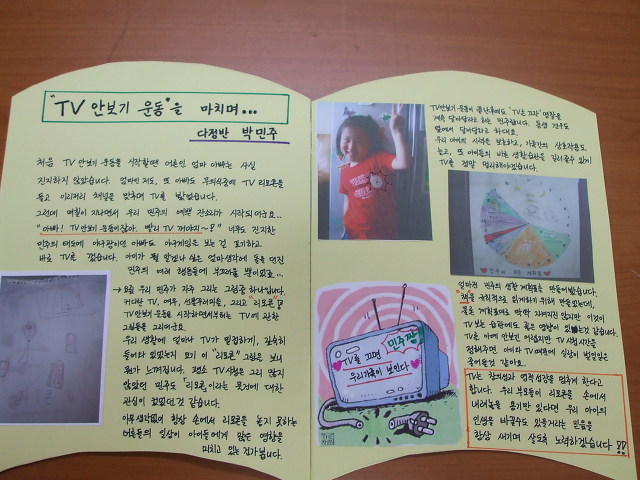 "TV 안보기 운동"을 마치며...
다정반 박민주
처음 TV 안보기 운동을 시작할땐 어른인 엄마 아빠는 사실
진지하지 않았습니다. 엄마인 저도, 또 아빠도 무의식중에 TV 리모콘을
들고 이리저리 채널을 맞추며 TV를 봤었습니다.
그런데 며칠이 지나면서 우리 민주의 예쁜 잔소리가 시작되더군요...
"아빠! TV안보기 운동이잖아. 빨리 TV 꺼야지~!" 너무도 진지한
민주의 태도에 야구광이던 아빠도 야구게임을 보는 걸 포기하고
바로 TV를 껐습니다. 아이가 뭘 알겠냐 싶은 엄마생각에 돌을 던진
민주의 여러 행동들에 부끄러울 뿐이었죠...
→ 요즘 우리 민주가 자주 그리는 그림중 하나입니다.
커다란 TV, 여우, 선풍기머리들, 그리고 "리모콘"!
TV안보기 운동을 시작하면서부터는 TV에 관한
그림들을 그리더군요.
우리 생활에 얼마나 TV가 밀접하게, 깊숙히
들어와 있었는지 포기 이 "리모콘" 그림을 보니
뭔가 느껴집니다. 평소 TV시청은 그리 많지
않았었던 민주도 "리모콘"이라는 물건에 대한
관심이 컸었던 것 같습니다.
아무생각없이 항상 손에서 리모콘을 놓지 못하는
어른들의 일상이 아이들에게 많은 영향을
미치고 있는건가봅니다.
TV안보기 운동이 끝난후에도 "TV는 끄자" 명찰을
계속 달아달라고 하는 민주랍니다. 동생 건우도
옆에서 달아달라고 하더군요.
우리 아이의 시력을 보호하고, 가족간의 상호작용도
늘고, 또 아이들의 바른 생활습관을 길러줄수 있게
TV를 정말 멀리해야겠습니다.
엄마랑 민주의 생활 계획표를 만들어봤습니다.
"책"을 규칙적으로 읽게하기 위해 만들었는데,
물론 계획표대로 딱딱 지켜지진 않지만 이것이
TV보는 습관에도 좋은 영향이 있는것 같습니다.
TV를 아예 안보긴 어렵지만 TV시청시간을
정해주면, 아이와 TV때문에 실랑이 벌일일은
줄어들것 같아요.
TV를 끄면
우리가족이 보인다
민주짱
TV는 창의성과 영적성장을 멈추게 한다고
합니다. 우리 부모들이 리모콘을 손에서
내려놓을 용기만 있다면 우리 아이의
인생을 바꿀수도 있을거라는 믿음을
항상 새기며 살도록 노력하겠습니다!!